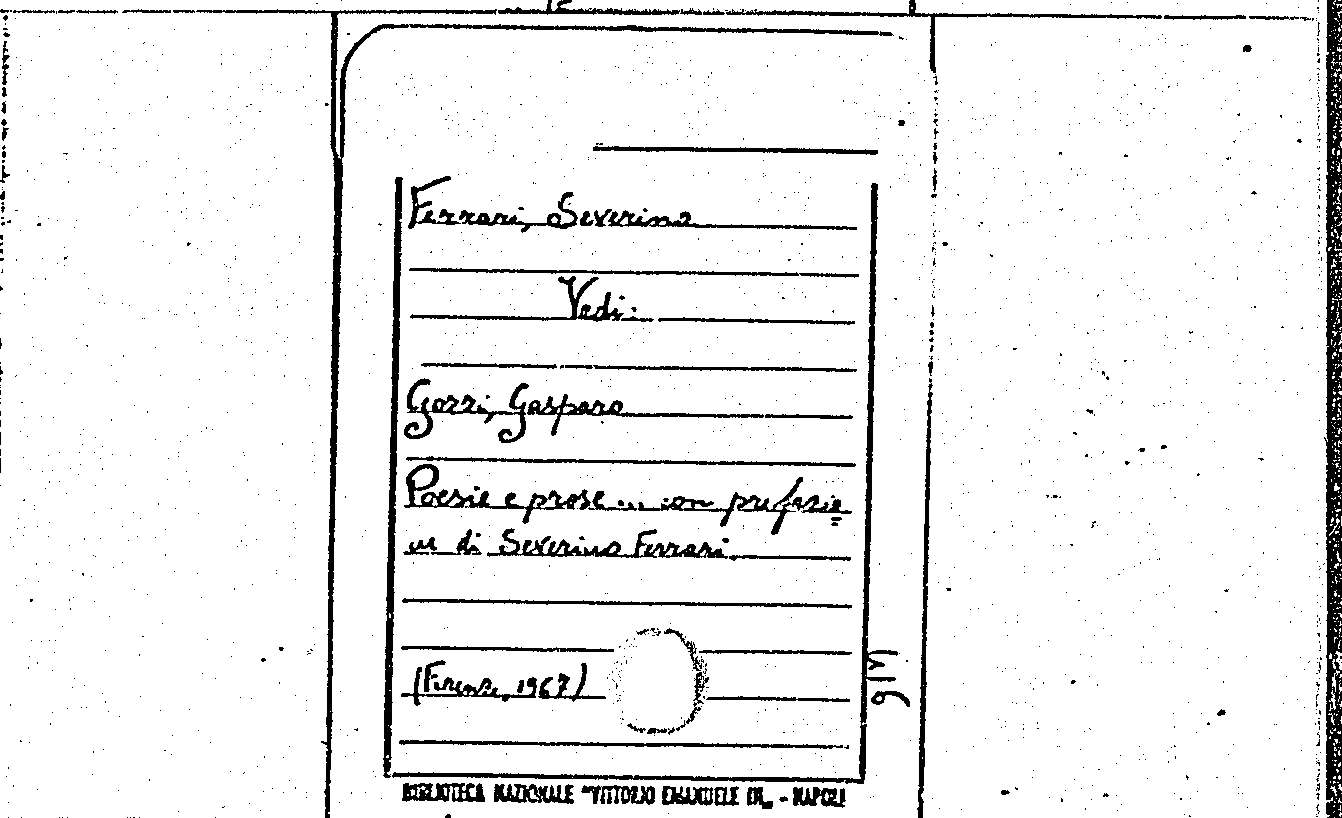 Ferrari, Severino
Vedi:
Gozzi, Gasparo
Poesie e prose ... con prefazio=
ne di Severino Ferrari.
(Firenze, 1967)
BIBLIOTECA NAZIONALE "VITTORIO EMANUELE III„ - NAPOLI